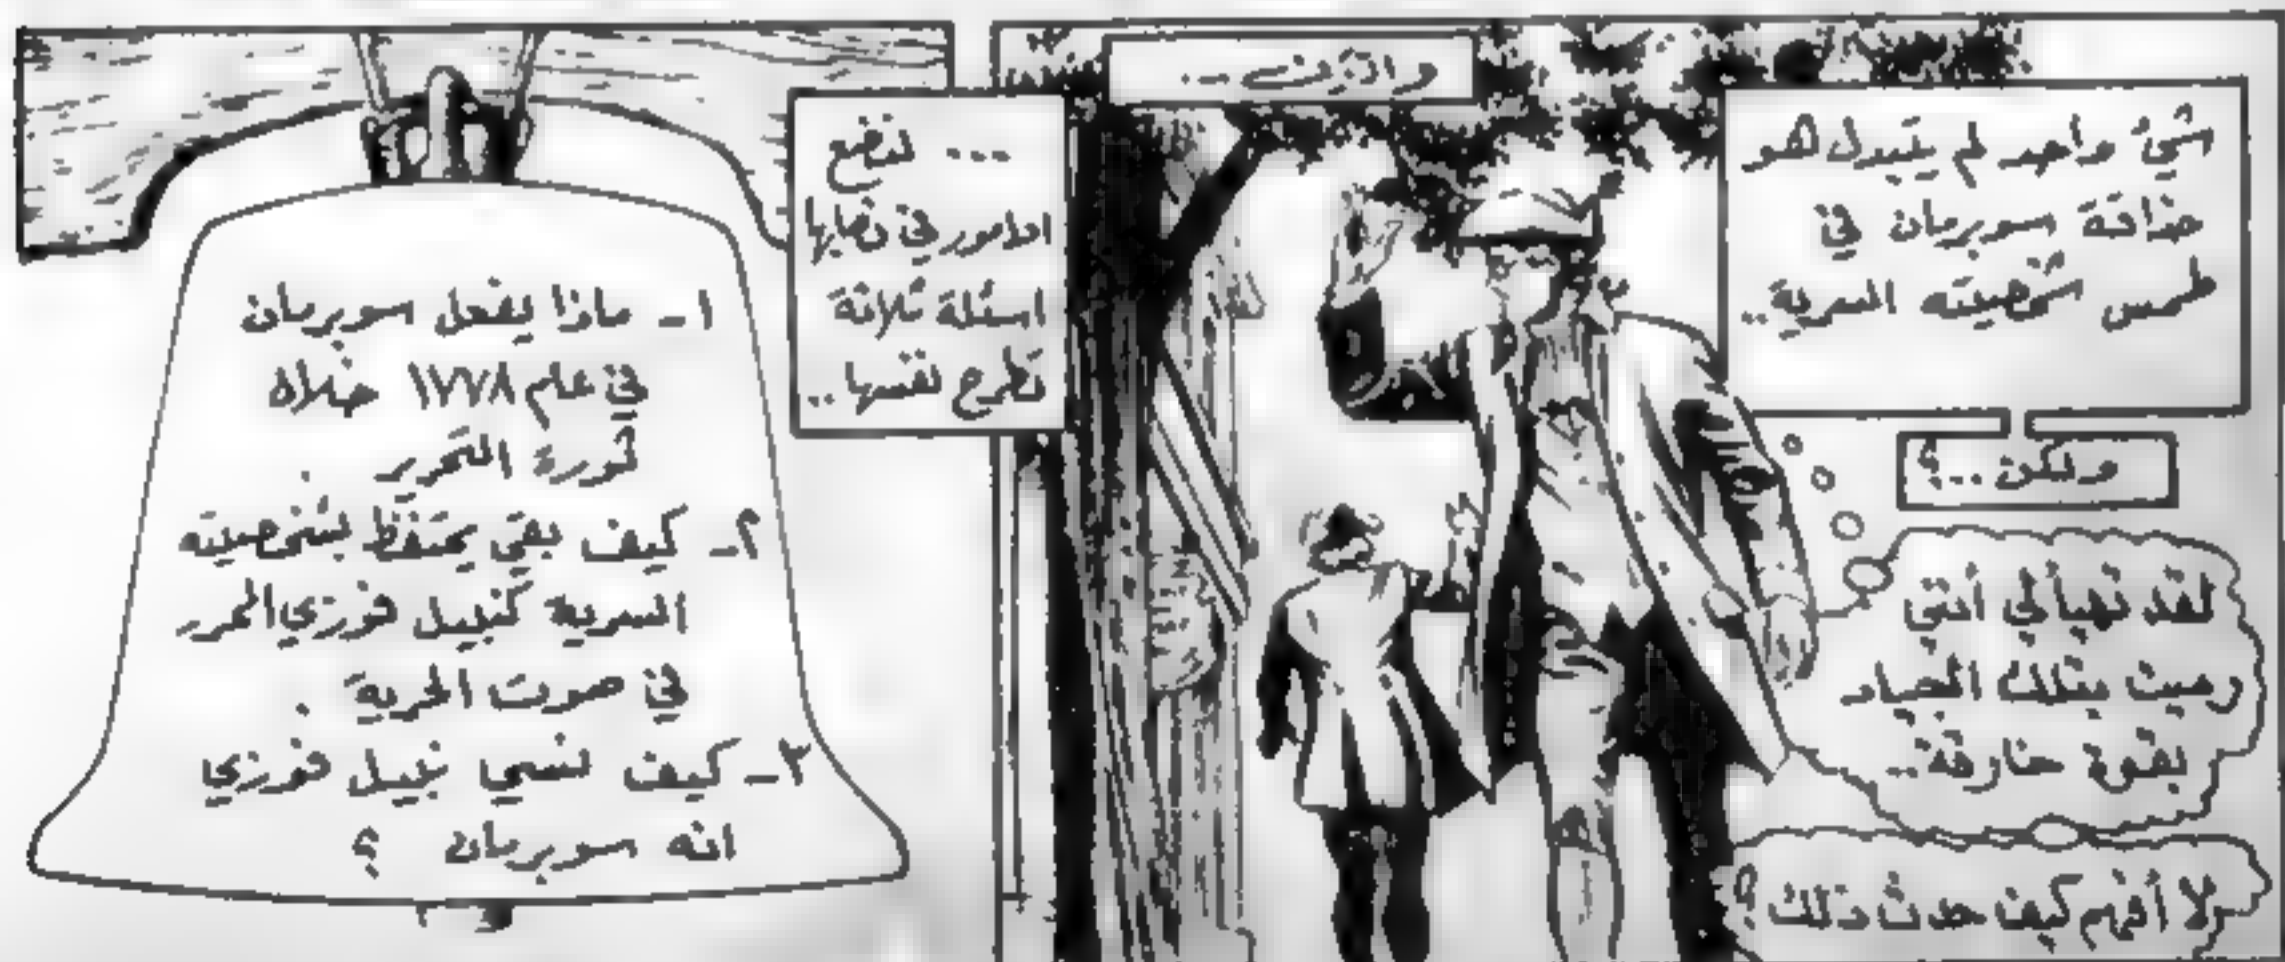 شيءٌ واحد لم يتبدل هو
حذاقة سوبرمان في
طمس شخصيته السرية..
ولكن...؟
لقد تهيأ لي أنني
رميت بتلك الجياد
بقوة خارقة..
لا أفهم كيف حدث ذلك؟
والآن...
... لنضع
الامور في نصابها
اسئلة ثلاثة
تطرح نفسها..
١- ماذا يفعل سوبرمان
في عام ١٧٧٨ خلال
ثورة التحرير .
٢- كيف بقي يحتفظ بشخصيته
السرية كنبيل فوزي المحرر
في صوت الحرية .
٣- كيف نسي نبيل فوزي
انه سوبرمان ؟